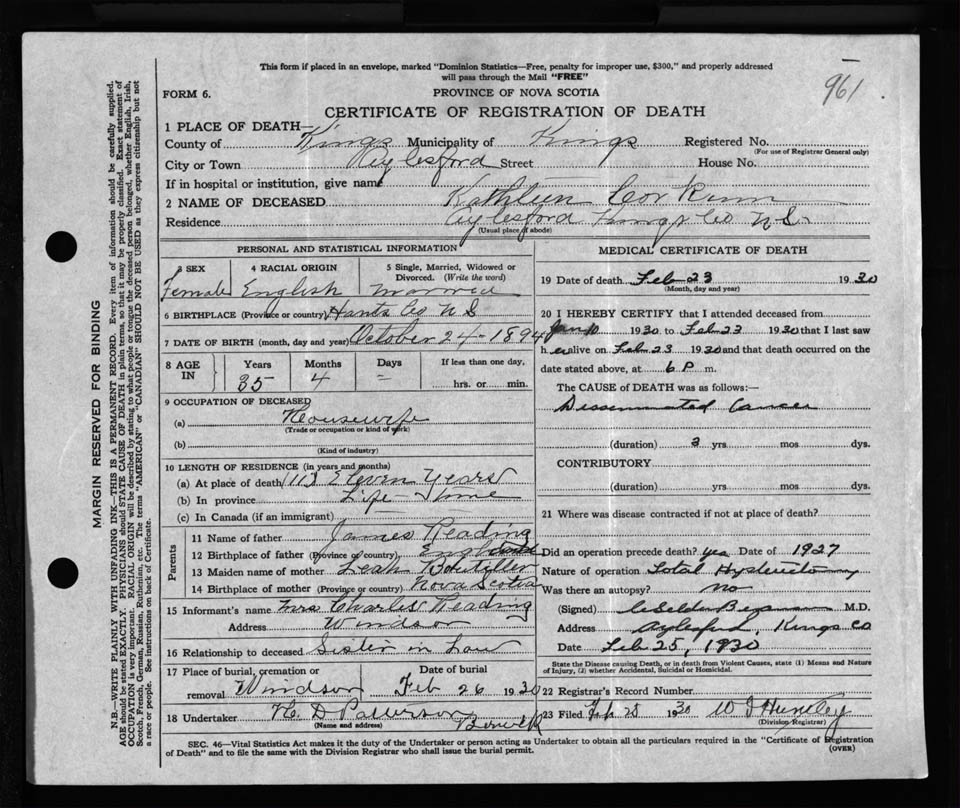 This form if placed in an envelope, marked "Dominion Statistics—Free, penalty for improper use, $300," and properly addressed
will pass through the Mail "FREE"
961
FORM 6.
PROVINCE OF NOVA SCOTIA
CERTIFICATE OF REGISTRATION OF DEATH
1 PLACE OF DEATH—
County of Kings Municipality of Kings Registered No.
(For use of Registrar General only)
City or Town Aylesford Street House No.
If in hospital or institution, give name
2 NAME OF DECEASED Kathleen Corkum
Residence Aylesford Kings Co N.S.
(Usual place of abode)
PERSONAL AND STATISTICAL INFORMATION
3 SEX 4 RACIAL ORIGIN 5 Single, Married, Widowed or
Divorced. (Write the word)
Female English Married
6 BIRTHPLACE (Province or country) Hants Co N S
7 DATE OF BIRTH (month, day and year) October 24-1894
8 AGE IN Years Months Days If less than one day,
35 4 – hrs. or min.
9 OCCUPATION OF DECEASED
(a) Housewife
(Trade or occupation or kind of work)
(b)
(Kind of industry)
10 LENGTH OF RESIDENCE (in years and months)
(a) At place of death Eleven Years
(b) In province Life-time
(c) In Canada (if an immigrant)
Parents
11 Name of father James Reading
12 Birthplace of father (Province or country) England
13 Maiden name of mother Leah Boutilier
14 Birthplace of mother (Province or country) Nova Scotia
15 Informant's name Mrs Charles Reading
Address Windsor
16 Relationship to deceased Sister in Law
17 Place of burial, cremation or Date of burial
removal Windsor Feb 26 1930
18 Undertaker H. D Patterson Berwick
(Name and address)
MEDICAL CERTIFICATE OF DEATH
19 Date of death Feb 23 1930
(Month, day and year)
20 I HEREBY CERTIFY that I attended deceased from
Jan 10 1930 to Feb 23 1930 that I last saw
her alive on Feb 23 1930 and that death occurred on the
date stated above, at 6 P m.
The CAUSE OF DEATH was as follows:—
Disseminated Cancer
(duration) 3 yrs mos dys.
CONTRIBUTORY
(duration) yrs. mos. dys.
21 Where was disease contracted if not at place of death?
Did an operation precede death? yes Date of 1927
Nature of operation Total Hysterectomy
Was there an autopsy? no
(Signed) M.D.
Address Aylesford, Kings Co
Date Feb 25, 1930
State the Disease causing Death, or in death from Violent Causes, state (1) Means and Nature
of Injury, (2) whether Accidental, Suicidal or Homicidal.
22 Registrar's Record Number
23 Filed Feb 28 1930 W J Huntley
(Division Registrar)
SEC. 46—Vital Statistics Act makes it the duty of the Undertaker or person acting as Undertaker to obtain all the particulars required in the "Certificate of Registration
of Death" and to file the same with the Division Registrar who shall issue the burial permit. (OVER)
MARGIN RESERVED FOR BINDING
N.B.—WRITE PLAINLY WITH UNFADING INK—THIS IS A PERMANENT RECORD. Every item of information should be carefully supplied.
AGE should be stated EXACTLY. PHYSICIANS should STATE CAUSE OF DEATH in plain terms, so that it may be properly classified. Exact statement of
OCCUPATION is very important. RACIAL ORIGIN will be described by stating to what people or tongue the deceased person belonged, whether English, Irish,
Scotch, French, German, Russian, Ruthenian, etc. The terms "AMERICAN" or "CANADIAN" SHOULD NOT BE USED as they express citizenship but not
a race or people. See instructions on back of Certificate.